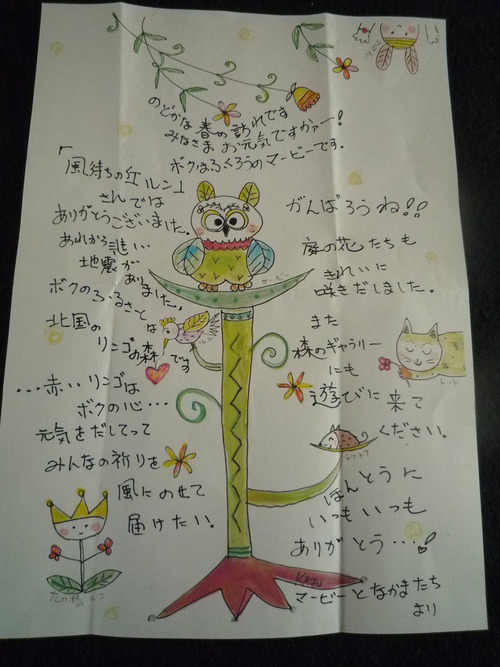 のどかな春の訪れです
みなさま お元気ですかァー!
ボクはふくろうのマービーです。
「風待ちの紅ルン」
さんでは
ありがとうございました。
あれから 悲しい
地震が
ありました。
ボクのふるさとは
北国の
リンゴの森です
…赤いリンゴは
ボクの心…
元気をだしてって
みんなの祈りを
風にのせて
届けたい。
がんばろうね!!
庭の花たちも
きれいに
咲きだしました。
また
森のギャラリー
にも
遊びに来て
ください。
ほんとうに
いつもいつも
ありがとう…!
マービーとなかまたち
より
マービー
KAZU